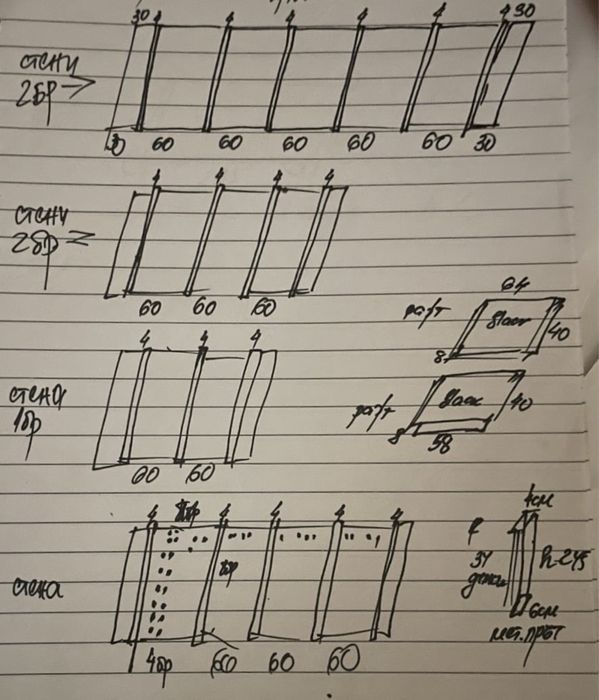 30 4 4 4 4 4 4 30
стени
2бр
30 60 60 60 60 60 30
4 4 4 4
стени
2бр
60 60 60
64
рафт 8 40
4 4 4
стена
1бр
рафт 40
8 58
60 60
4 4 4 4 4
4см
h-245
стена
31
6см
4бр 60 60 60